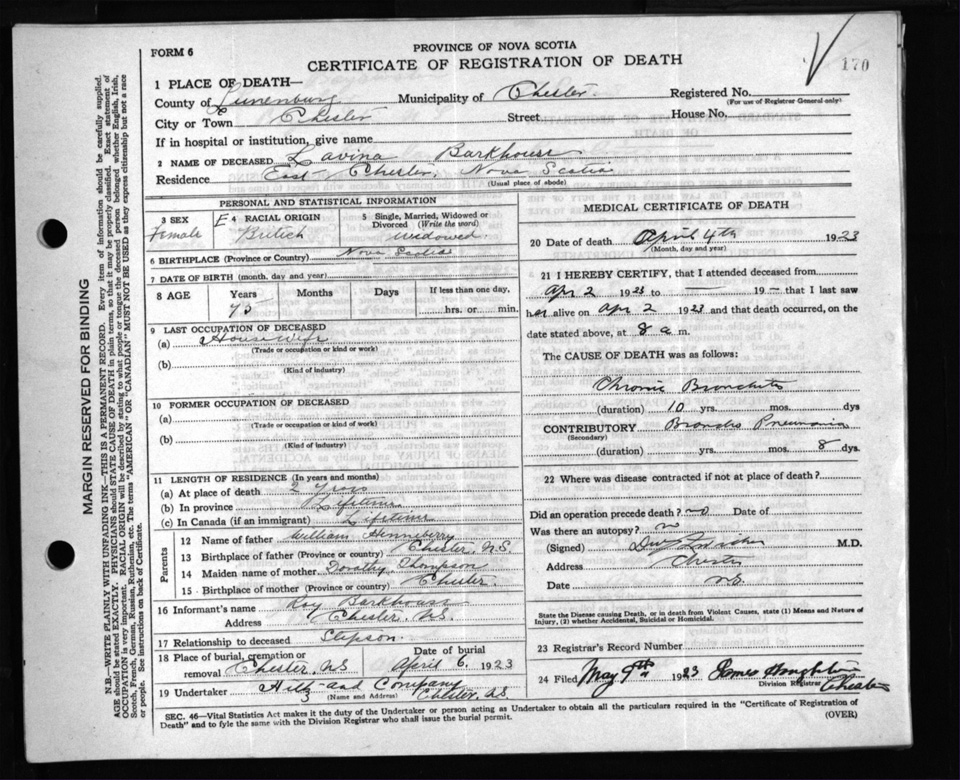 FORM 6
PROVINCE OF NOVA SCOTIA
CERTIFICATE OF REGISTRATION OF DEATH
170
1 PLACE OF DEATH—
County of Lunenburg Municipality of Chester Registered No.
(For use of Registrar General only)
City or Town Chester Street: House No.
If in hospital or institution, give name
2 NAME OF DECEASED Lavina Barkhouse
Residence East Chester, Nova Scotia
(Usual place of abode)
PERSONAL AND STATISTICAL INFORMATION
3 SEX E 4 RACIAL ORIGIN 5 Single, Married, Widowed or
Divorced (Write the word)
Female British widowed
6 BIRTHPLACE (Province or Country) Nova Scotia
7 DATE OF BIRTH (month, day and year)
8 AGE Years Months Days If less than one day,
75 hrs. or min.
9 LAST OCCUPATION OF DECEASED
(a) Housewife
(Trade or occupation or kind or work)
(b)
(Kind of industry)
10 FORMER OCCUPATION OF DECEASED
(a)
(Trade or occupation or kind of work)
(b)
(Kind of industry)
11 LENGTH OF RESIDENCE (In years and months)
(a) At place of death 2 years
(b) In province Lifetime
(c) In Canada (if an immigrant) Lifetime
Parents
12 Name of father William Henneberry
13 Birthplace of father (Province or country) Chester, N.S.
14 Maiden name of mother Dorothy Thompson
15 Birthplace of mother (Province or country) Chester
16 Informant's name Roy Barkhouse
Address Chester, N.S.
17 Relationship to deceased Stepson
18 Place of burial, cremation or Date of burial
removal Chester, NS April 6, 1923
19 Undertaker Hilts and Company
(Name and Address) Chester, NS
MEDICAL CERTIFICATE OF DEATH
20 Date of death April 4th 1923
(Month, day and year)
21 I HEREBY CERTIFY, that I attended deceased from
Apr 2 1923 to — 19 — that I last saw
her alive on Apr 2 1923 and that death occurred, on the
date stated above, at 8 a m.
The CAUSE OF DEATH was as follows:
Chronic Bronchitis
(duration) 10 yrs. mos. dys
CONTRIBUTORY Broncho Pneumonia
(Secondary)
(duration) yrs. mos. 8 dys.
22 Where was disease contracted if not at place of death?
Did an operation precede death? no Date of
Was there an autopsy? no
(Signed) M.D.
Address Chester
Date N.S.
State the Disease causing Death, or in death from Violent Causes, state (1) Means and Nature of
Injury, (2) whether Accidental, Suicidal or Homicidal.
23 Registrar's Record Number
24 Filed May 9th 1923 James Houghton
Division Registrar Chester
SEC. 46—Vital Statistics Act makes it the duty of the Undertaker or person acting as Undertaker to obtain all the particulars required in the "Certificate of Registration of
Death" and to fyle the same with the Division Registrar who shall issue the burial permit.
(OVER)
MARGIN RESERVED FOR BINDING
N.B.—WRITE PLAINLY WITH UNFADING INK—THIS IS A PERMANENT RECORD. Every item of information should be carefully supplied.
AGE should be stated EXACTLY. PHYSICIANS should STATE CAUSE OF DEATH in plain terms, so that it may be properly classified. Exact statement of
OCCUPATION is very important. RACIAL ORIGIN will be described by stating to what people or tongue the deceased person belonged, whether English, Irish,
Scotch, French, German, Russian, Ruthenian, etc. The terms "AMERICAN" OR "CANADIAN" MUST NOT BE USED as they express citizenship but not a race
or people. See instructions on back of Certificate.